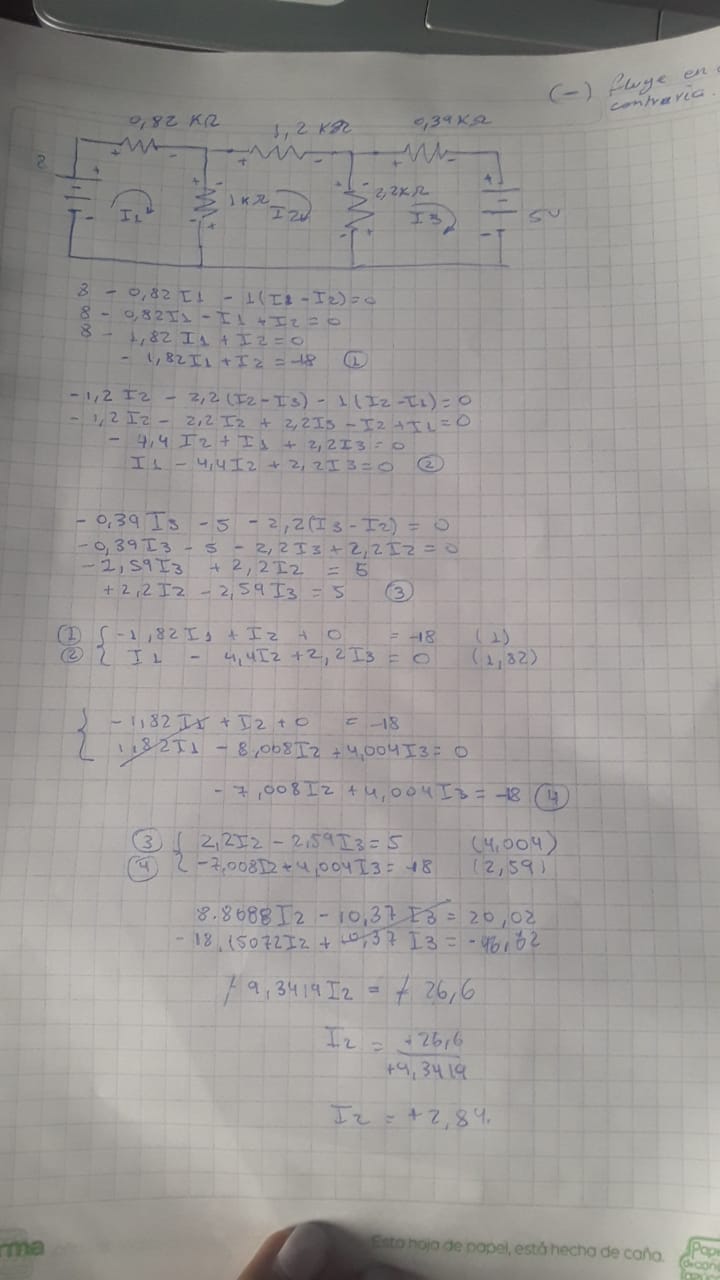 (-) fluye en
contraria.
0,82 KΩ
1,2 KΩ
0,39KΩ
+ - + - + -
1KΩ
2,2KΩ
I1
I2
I3
5V
8 - 0,82 I1 - 1(I1-I2)=0
8 - 0,82I1 - I1 + I2 = 0
8 - 1,82 I1 + I2 = 0
- 1,82I1 + I2 = -18 ①
-1,2 I2 - 2,2(I2-I3) - 1(I2-I1)=0
- 1,2I2 - 2,2I2 + 2,2I3 - I2 + I1 = 0
- 4,4 I2 + I1 + 2,2I3 = 0
I1 - 4,4I2 + 2,2I3 = 0 ②
- 0,39 I3 - 5 - 2,2(I3-I2) = 0
-0,39I3 - 5 - 2,2I3 + 2,2I2 = 0
-2,59I3 + 2,2I2 = 5
+2,2I2 - 2,59I3 = 5 ③
① { -1,82I1 + I2 + 0 = -18 (1)
② { I1 - 4,4I2 + 2,2I3 = 0 (1,82)
{ -1,82I1 + I2 + 0 = -18
1,82I1 - 8,008I2 + 4,004I3 = 0
- 7,008I2 + 4,004I3 = -18 ④
③ { 2,2I2 - 2,59I3 = 5 (4,004)
④ { -7,008I2 + 4,004I3 = -18 (2,59)
8.8088I2 - 10,37 I3 = 20,02
- 18,15072I2 + 10,37 I3 = -46,62
- 9,3419I2 = - 26,6
I2 = +26,6
+9,3419
I2 = +2,84.
rma
Esta hoja de papel, está hecha de caña.